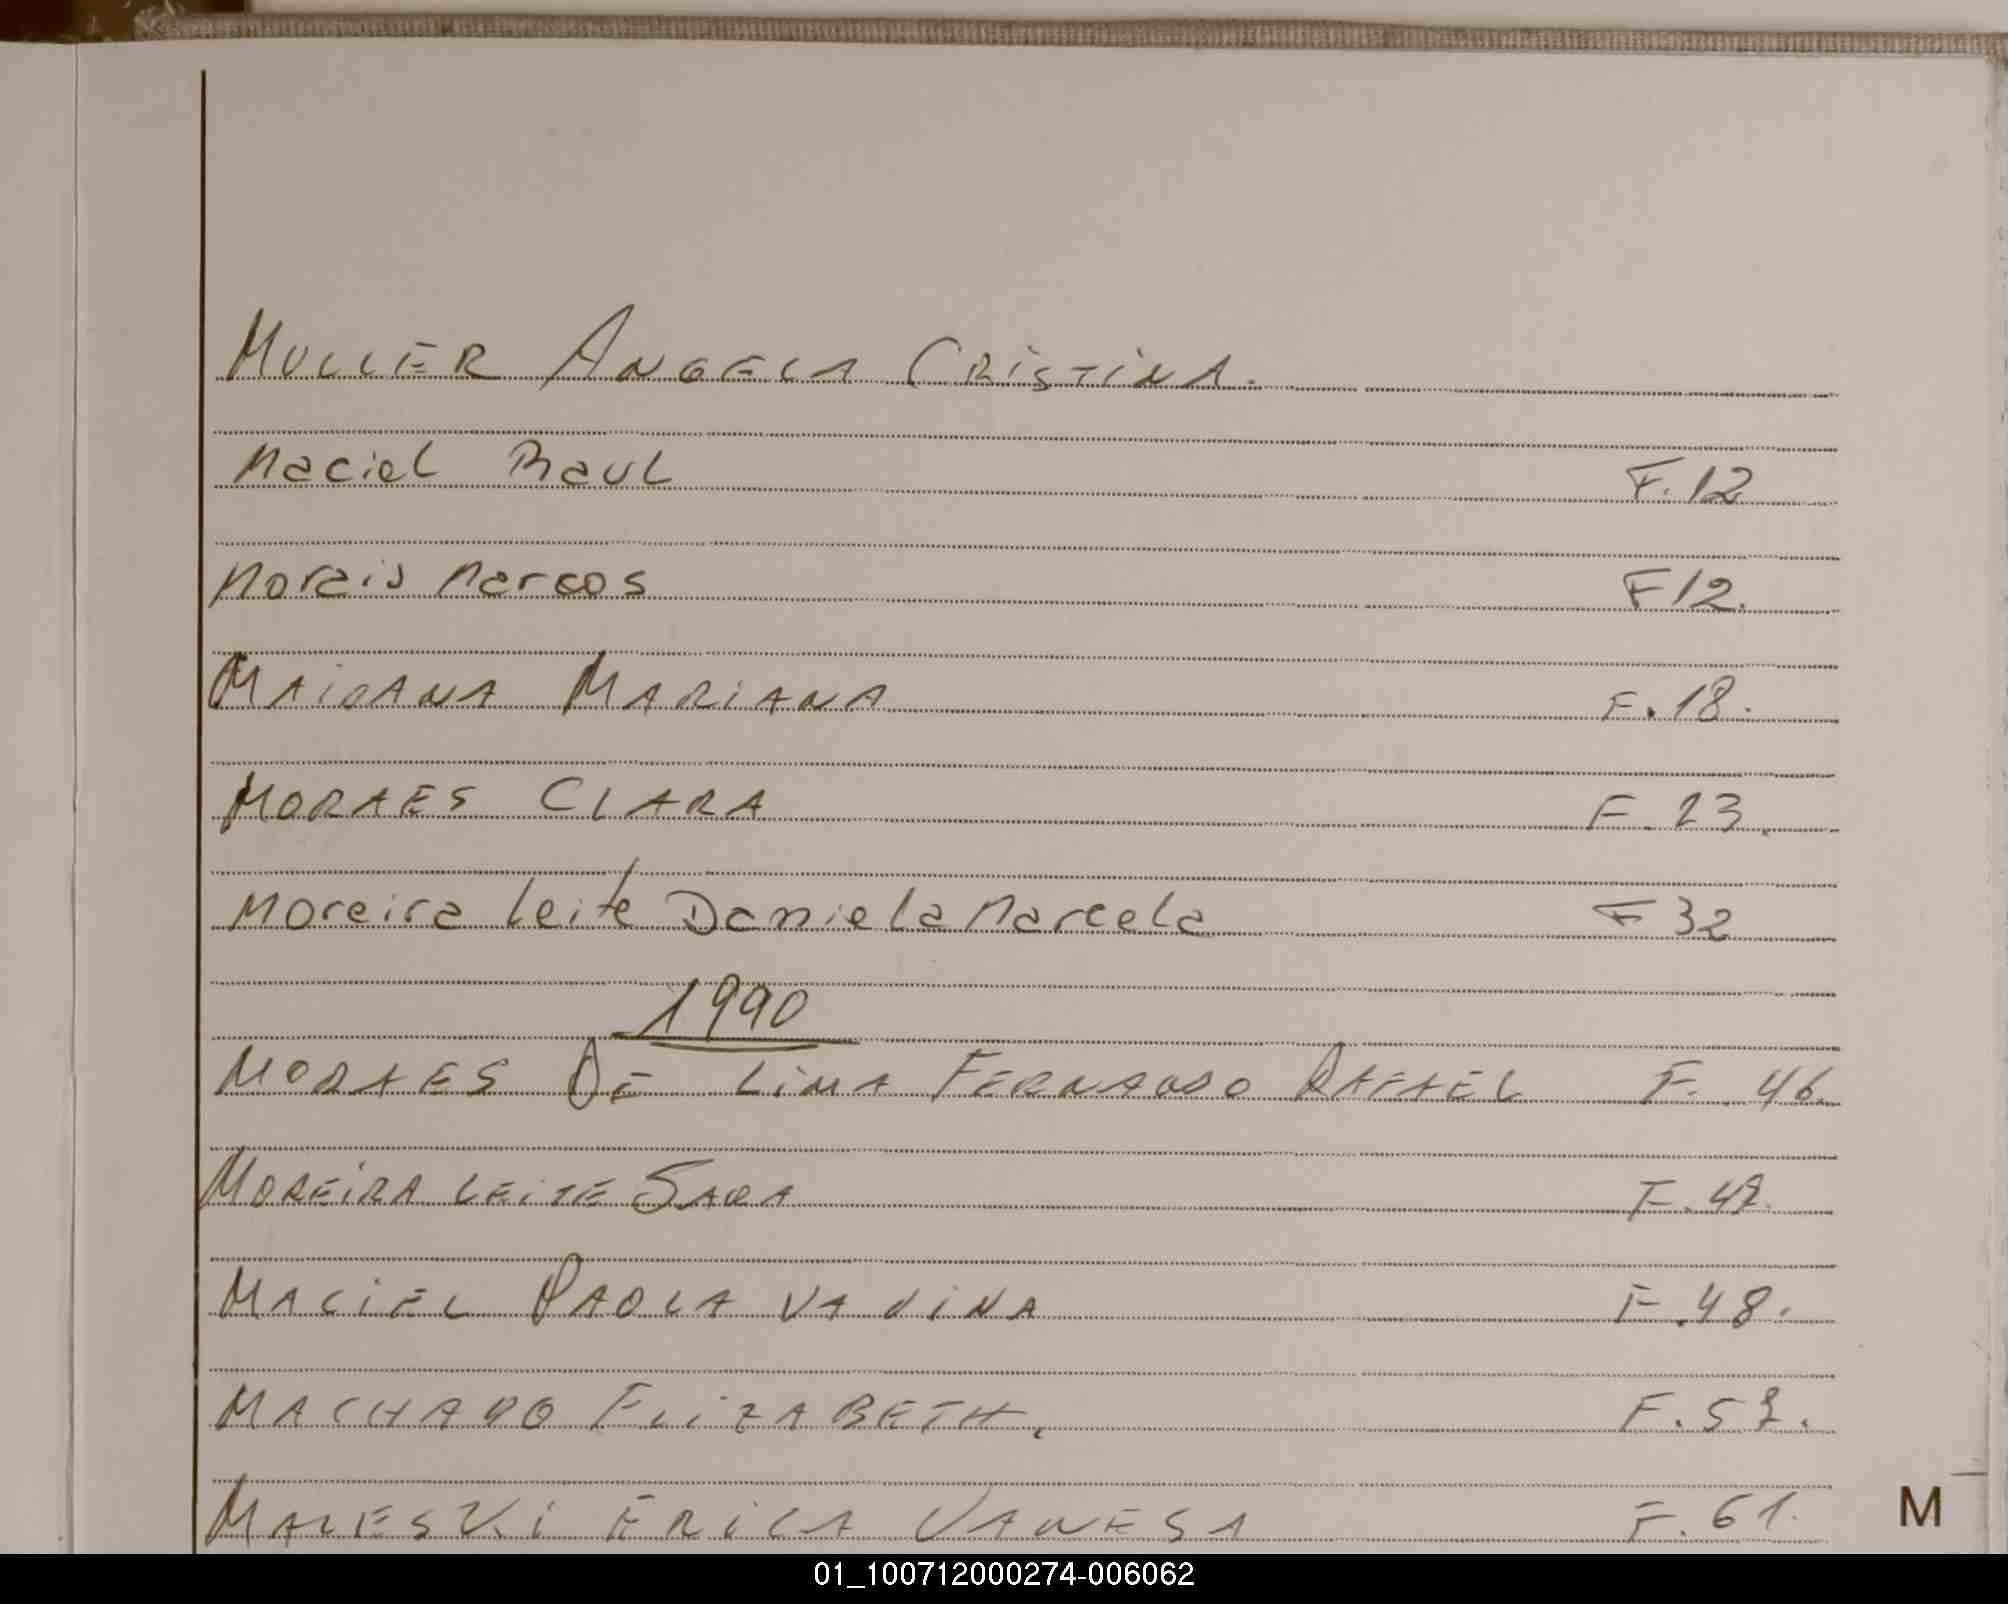 MULLER ANGELA CRISTINA.
Maciel Raul F.12
Morais Marcos F12.
MAIDANA MARIANA F.18.
MORAES CLARA F.23.
Moreira Leite Daniela Marcela F32
1990
MORAES DE LIMA FERNANDO RAFAEL F.46.
MOREIRA LEITE SARA F.47.
MACIEL PAOLA VANINA F.48.
MACHADO ELIZABETH. F.57.
MALESKI ERICA VANESA F.61.
M
01_100712000274-006062